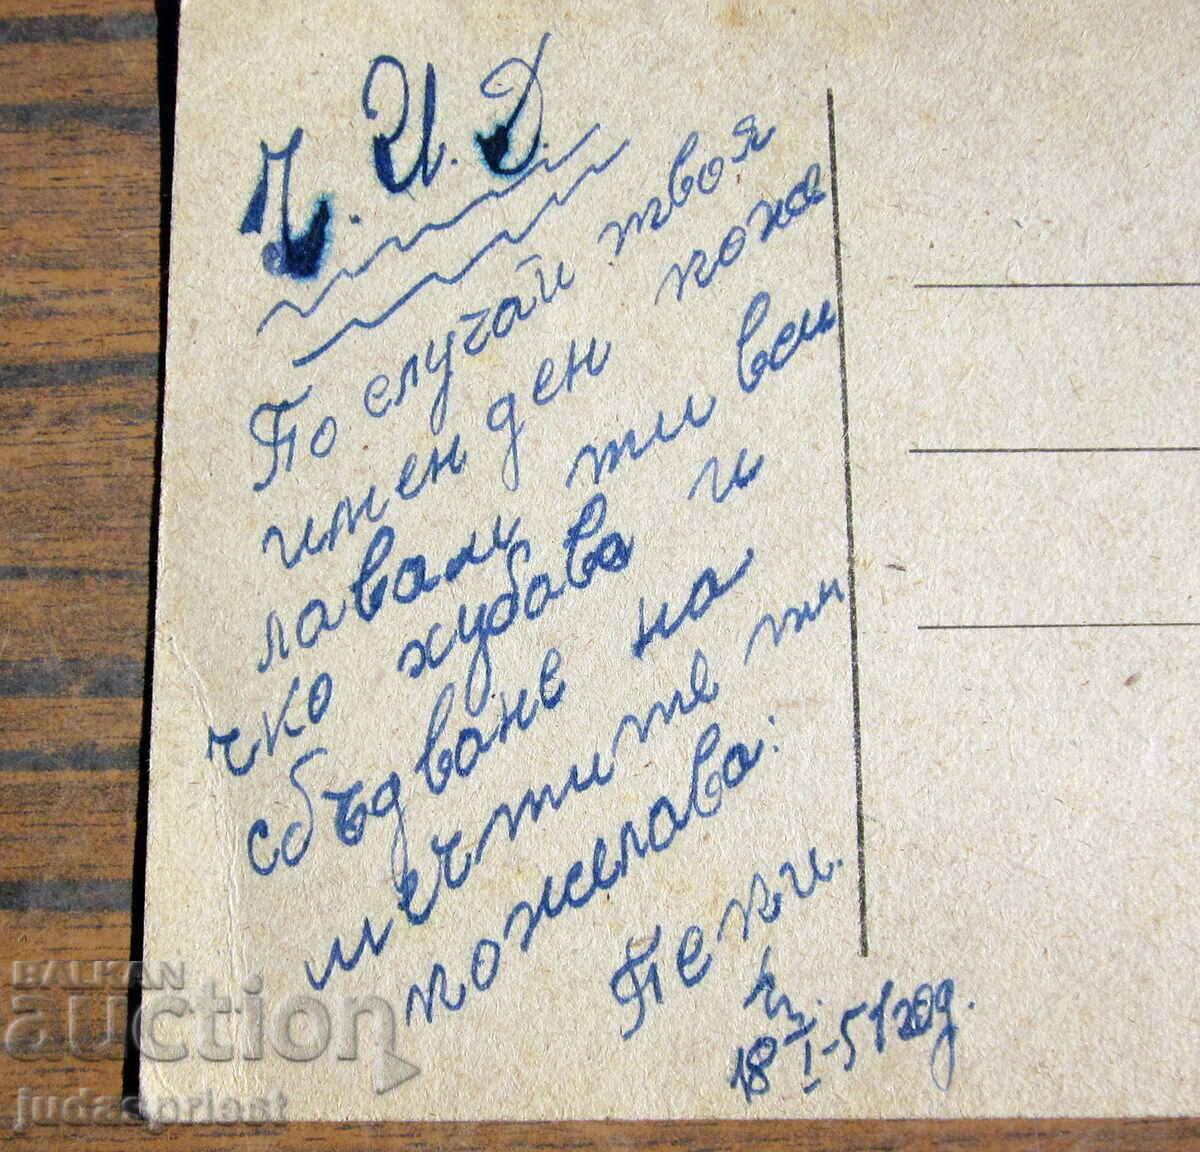 Ч. И. Д.
По случай твоя
имен ден поже
лавам ти вси
чко хубаво и
сбъдване на
мечтите ти
пожелава:
Пепи.
18-I-51 год.
BALKAN
auction
judaspriest